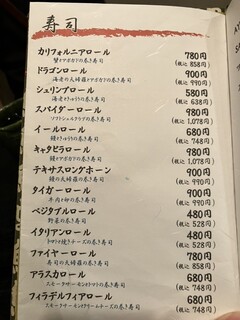 寿司
カリフォルニアロール 780円
蟹とアボカドの巻き寿司 (税込 858円)
ドラゴンロール 900円
海老の天婦羅とアボカドの巻き寿司 (税込 990円)
シュリンプロール 580円
海老ときゅうりの巻き寿司 (税込 638円)
スパイダーロール 980円
ソフトシェルクラブの巻き寿司 (税込 1,078円)
イールロール 680円
鰻ときゅうりの巻き寿司 (税込 748円)
キャタピラロール 980円
鰻とアボカドの巻き寿司 (税込 1,078円)
テキサスロングホーン 900円
鰻の天婦羅の巻き寿司 (税込 990円)
タイガーロール 900円
牛肉と卵の巻き寿司 (税込 990円)
ベジタブルロール 480円
野菜の巻き寿司 (税込 528円)
イタリアンロール 480円
トマトと焼きチーズの巻き寿司 (税込 528円)
ファイヤーロール 780円
寿司の天婦羅の巻き寿司 (税込 858円)
アラスカロール 680円
スモークサーモンとトマトの巻き寿司 (税込 748円)
フィラデルフィアロール 680円
スモークサーモンとクリームチーズの巻き寿司 (税込 748円)